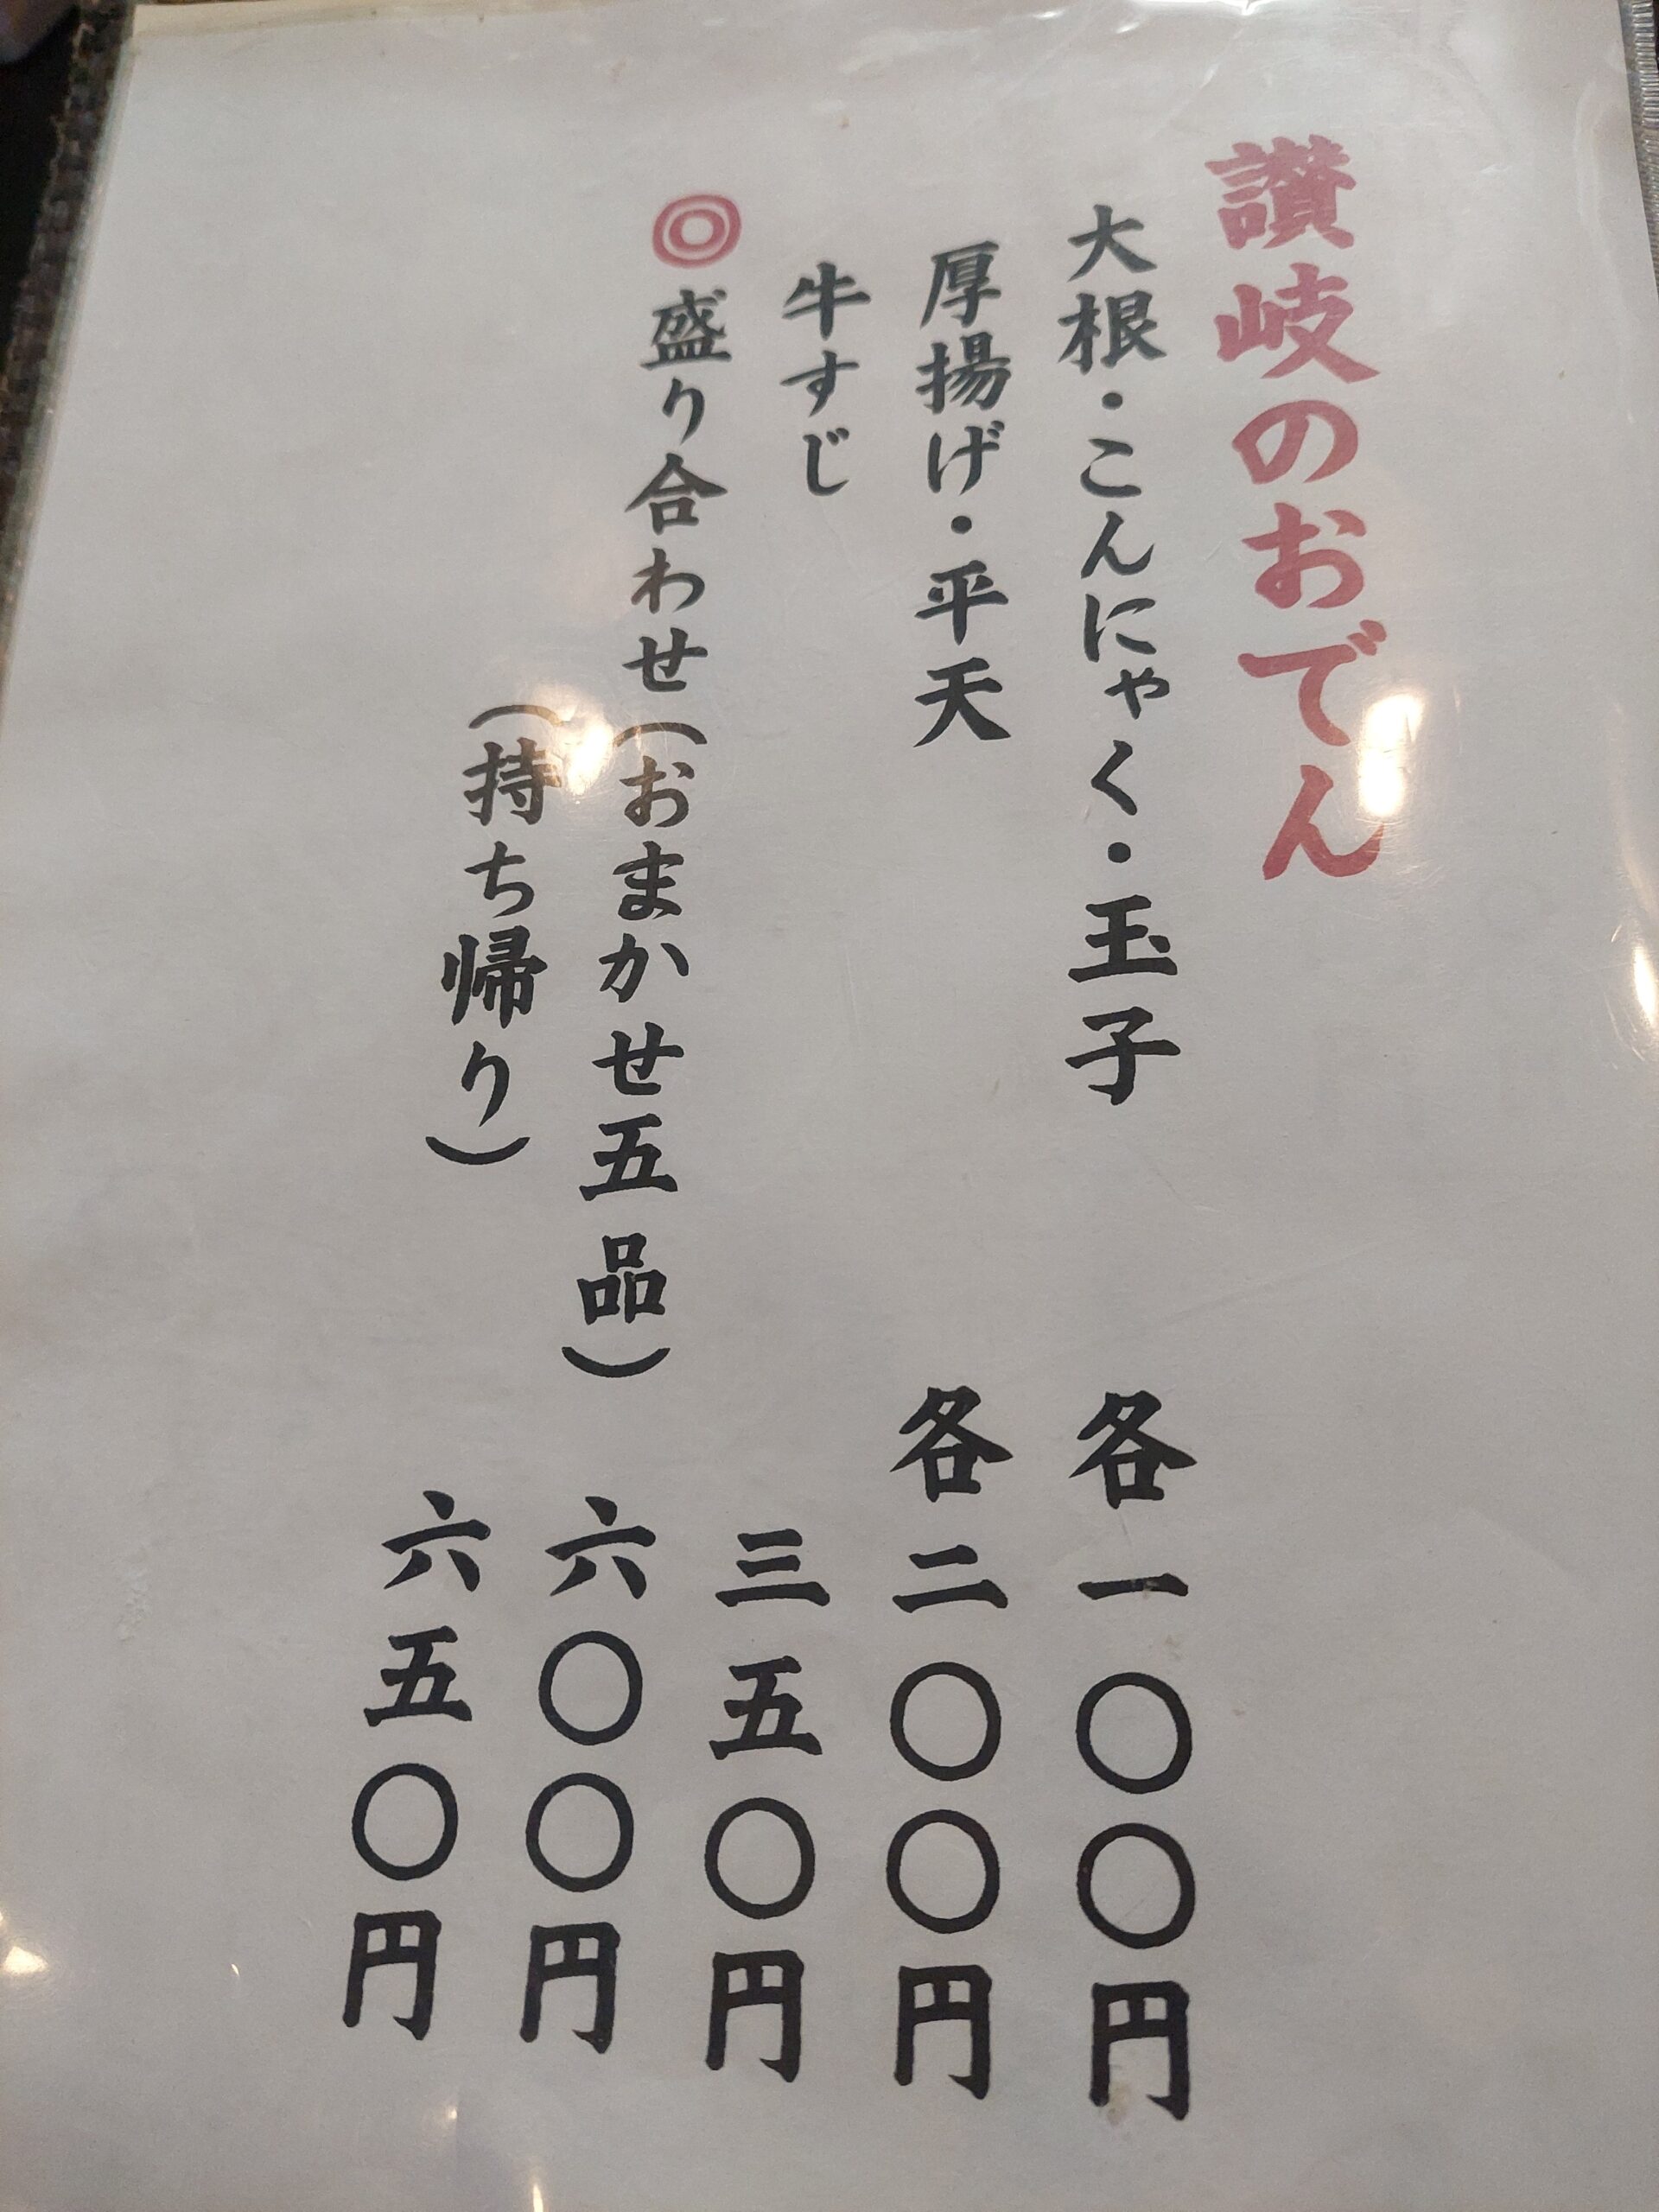 讃岐のおでん
大根・こんにゃく・玉子 各一〇〇円
厚揚げ・平天 各二〇〇円
牛すじ 三五〇円
◎盛り合わせ(おまかせ五品) 六〇〇円
(持ち帰り) 六五〇円